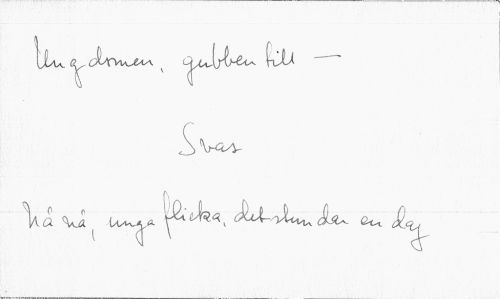 Ungdomen, gubben till —
Svar
Nå nå, unga flicka, det stundar en dag